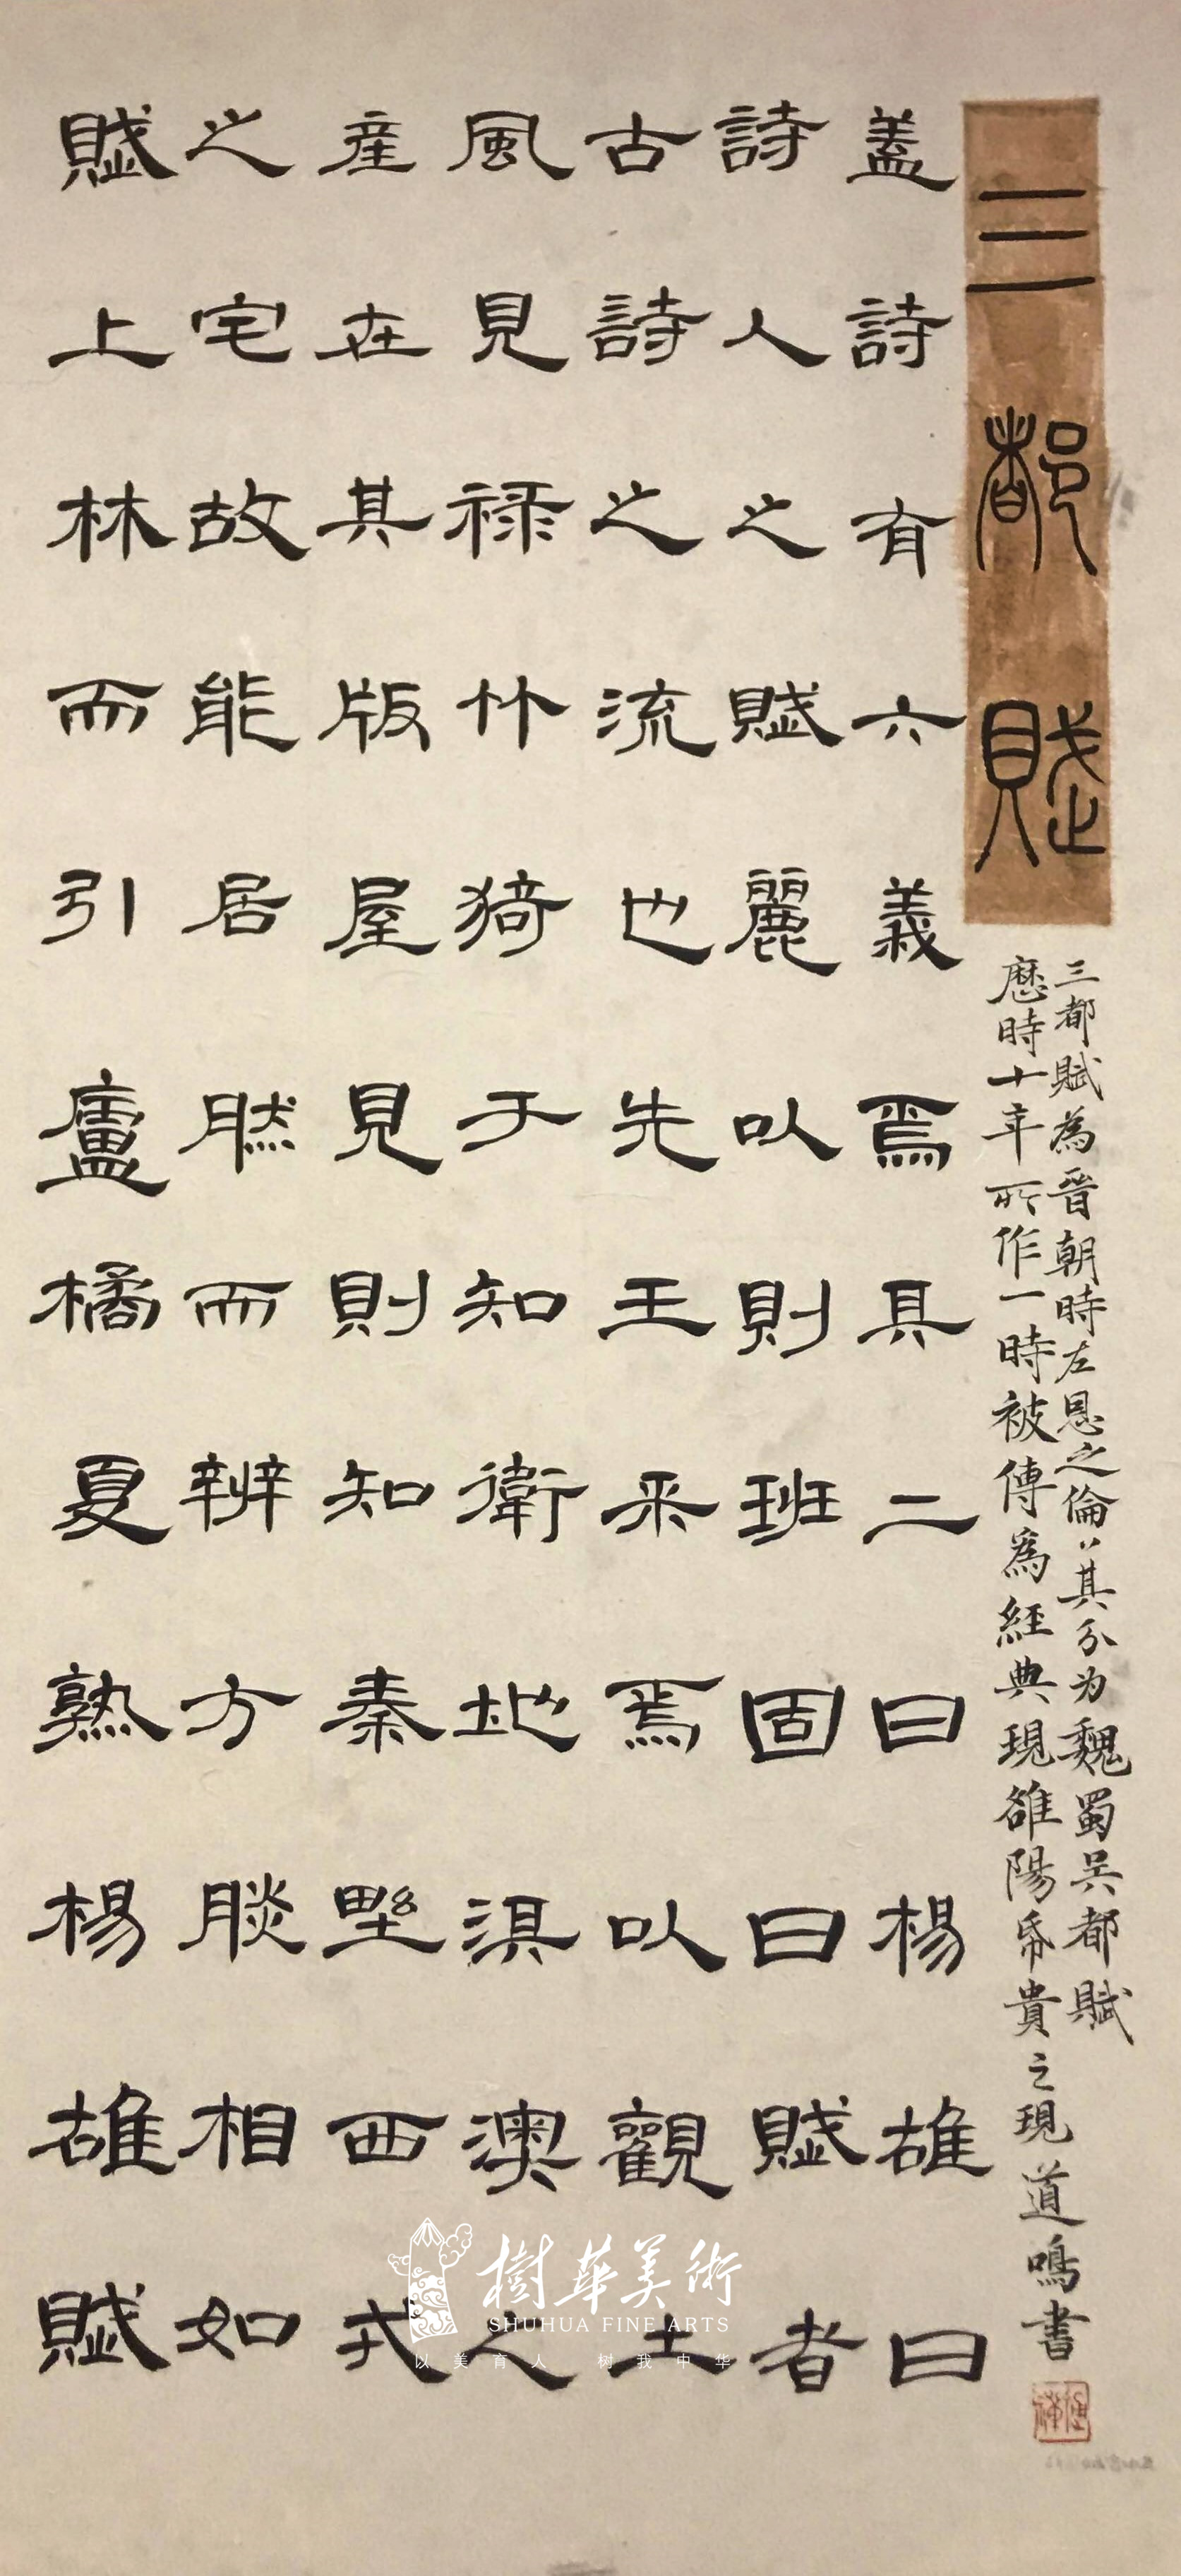 三都賦
三都賦為晉朝時左思之倫〻其分为魏蜀吴都賦
歷時十年所作一時被傳為經典現雒陽帋貴之現道鳴書
蓋詩有六義焉其二曰楊雄曰
詩人之賦麗以則班固曰賦者
古詩之流也先王采焉以觀土
風見禄竹猗于知衛地淇澳人
産在其版屋見則知秦野西戎
之宅故能居然而辨方脥相如
賦上林而引盧橘夏熟楊雄賦
樹華美術
SHUHUA FINE ARTS
以美育人 树我中华